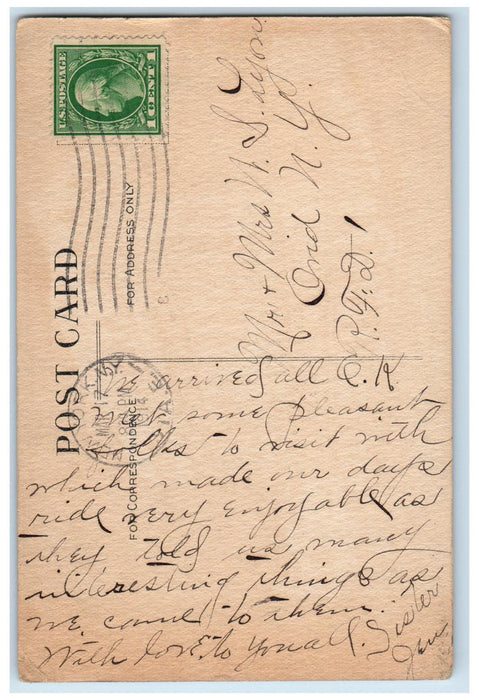 U.S. POSTAGE
1 CENT 1
POST CARD
FOR ADDRESS ONLY
FOR CORRESPONDENCE
Mr. + Mrs W. S. Lyon
Ovid N. Y.
R. F. D. 1
We arrived all O.K
met some pleasant
folks to visit with
which made our days
ride very enjoyable as
they told us many
interesting things as
we came to them.
With love to you all. Sister